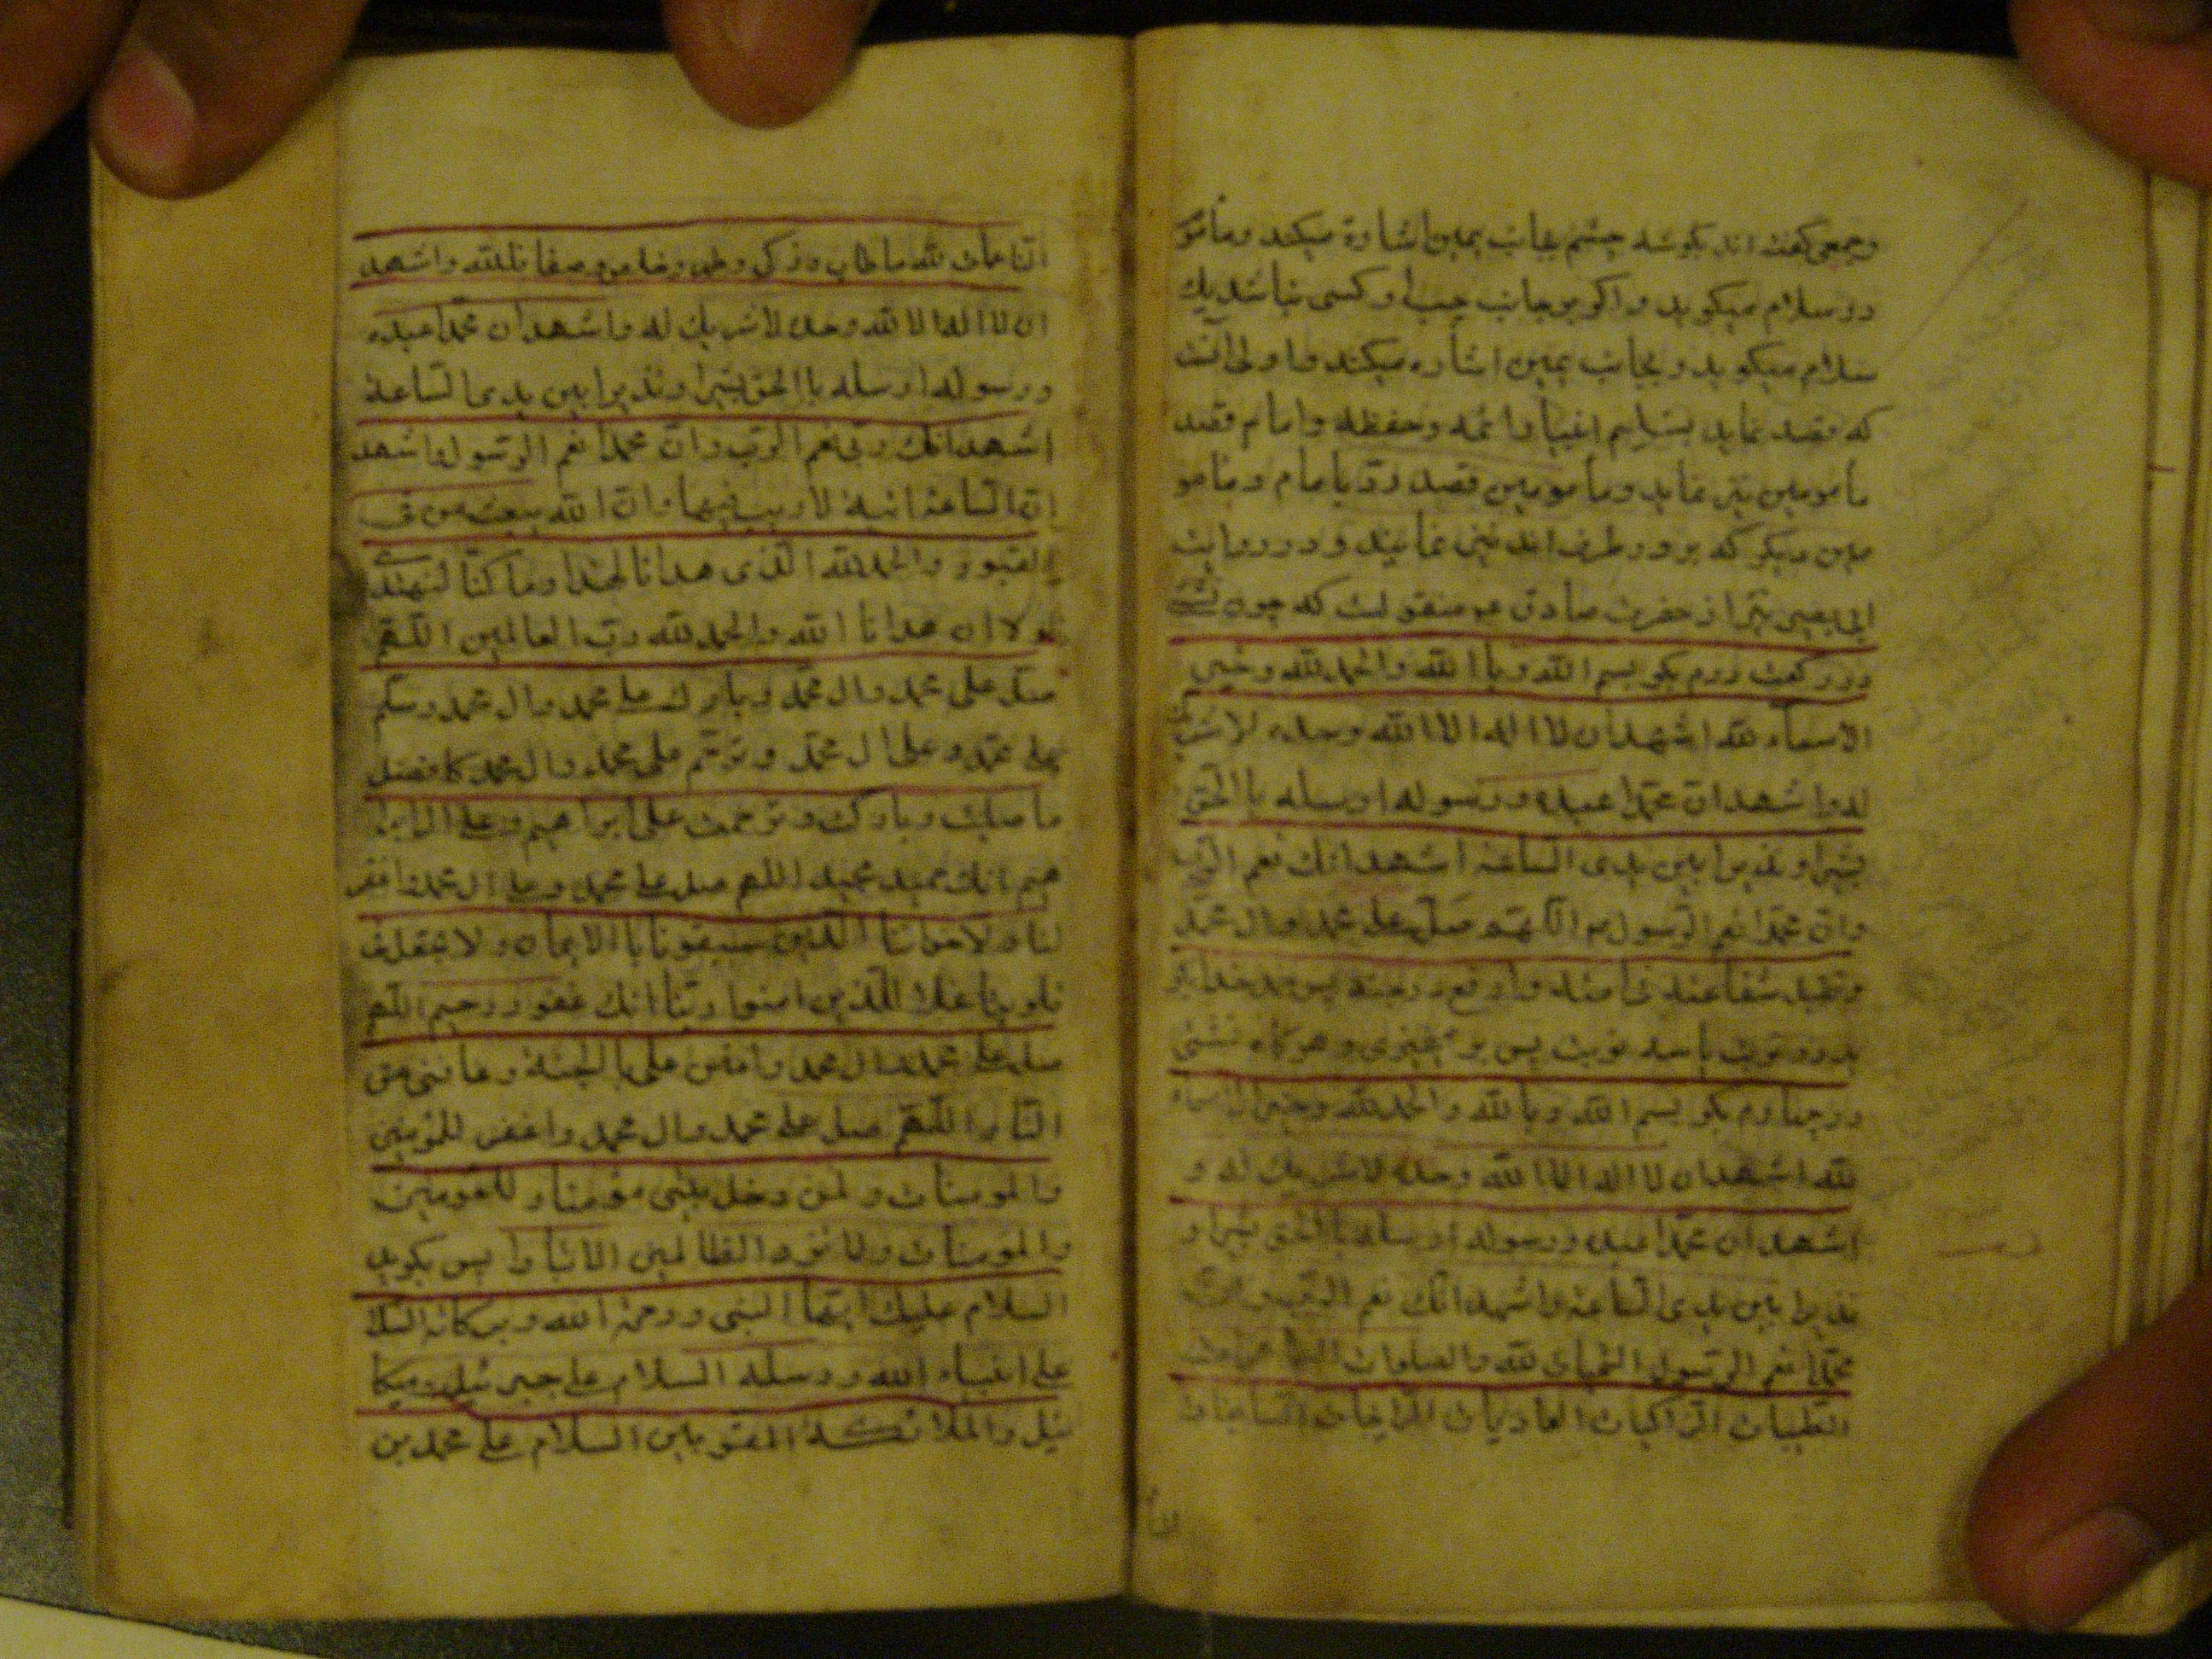 وجمعی کفته اند بکوشه چشم بجانب یمین اشارة میکند ومأمو
دو سلام میکوید واکر بر جانب چپ او کسی نباشد یك
سلام میکوید و بجانب یمین اشاره میکند و اولی آنست
که قصد نماید بسلام انبیا وائمه وحفظه وامام قصد
مأمومین نیز نماید ومأمومین قصد رد بامام ومأمو
مین دیکر که بر دو طرف اند نیز نمایند و در روایت
ابی بصیر نیز از حضرت صادق ع منقولست که چون
در رکعت دوم بکو بسم الله وبا الله والحمد لله وخیر
الاسماء لله اشهد ان لا اله الا الله وحده لا شر
له واشهد ان محمدا عبده ورسوله ارسله با الحق
بشیرا ونذیرا بین یدی الساعة اشهد انك نعم الرب
وان محمدا نعم الرسول اللهم صل علی محمد وال محمد
وتقبل شفاعته فی امته وارفع درجته پس حمد خدا بکو
دو نوبت یا سه نوبت پس بر میخیزی و هرکاه نشینی
در چهارم بکو بسم الله وبا لله والحمد لله وخیر الاسماء
لله اشهد ان لا اله الا الله وحده لا شریك له و
اشهد ان محمدا عبده ورسوله ارسله با الحق بشیرا و
نذیرا بین یدی الساعة واشهد انك نعم الرب وان
محمدا نعم الرسول التحیات لله والصلوات الطاهرات
الطیبات الزاکیات الغادیات الرایحات السابغات
النا
الناعمات لله ما طاب وزکی وطهر وخلص وصفا فلله واشهد
ان لا اله الا الله وحده لا شریك له واشهد ان محمدا عبده
ورسوله ارسله با الحق بشیرا ونذیرا بین یدی الساعة
اشهد انك ربی نعم الرب وان محمدا نعم الرسول واشهد
ان الساعة اتیة لا ریب فیها وان الله یبعث من فی
القبور والحمد لله الذی هدانا لهذا وما کنا لنهتدی
لو لا ان هدانا الله والحمد لله رب العالمین اللهم
صل علی محمد وال محمد وبارك علی محمد وال محمد وسلم
علی محمد وعلی ال محمد وترحم علی محمد وال محمد کما فضل
ما صلیت وبارکت وترحمت علی ابراهیم وعلی ال ابرا
هیم انك حمید مجید اللهم صل علی محمد وعلی ال محمد واغفر
لنا ولاخواننا الذین سبقونا با الایمان ولا تجعل فی
قلوبنا غلا للذین امنوا ربنا انك غفور رحیم اللهم
صل علی محمد وال محمد وامنن علی با الجنة وعافنی من
النار اللهم صل علی محمد وال محمد واغفر للمؤمنین
والمومنات ولمن دخل بیتی مؤمنا وللمومنین
والمومنات ولا تزد الظالمین الا تبارا پس بکوید
السلام علیك ایها النبی ورحمة الله وبرکاته السلا
علی انبیاء الله ورسله السلام علی جبرئیل ومیکا
ئیل والملائکة المقربین السلام علی محمد بن